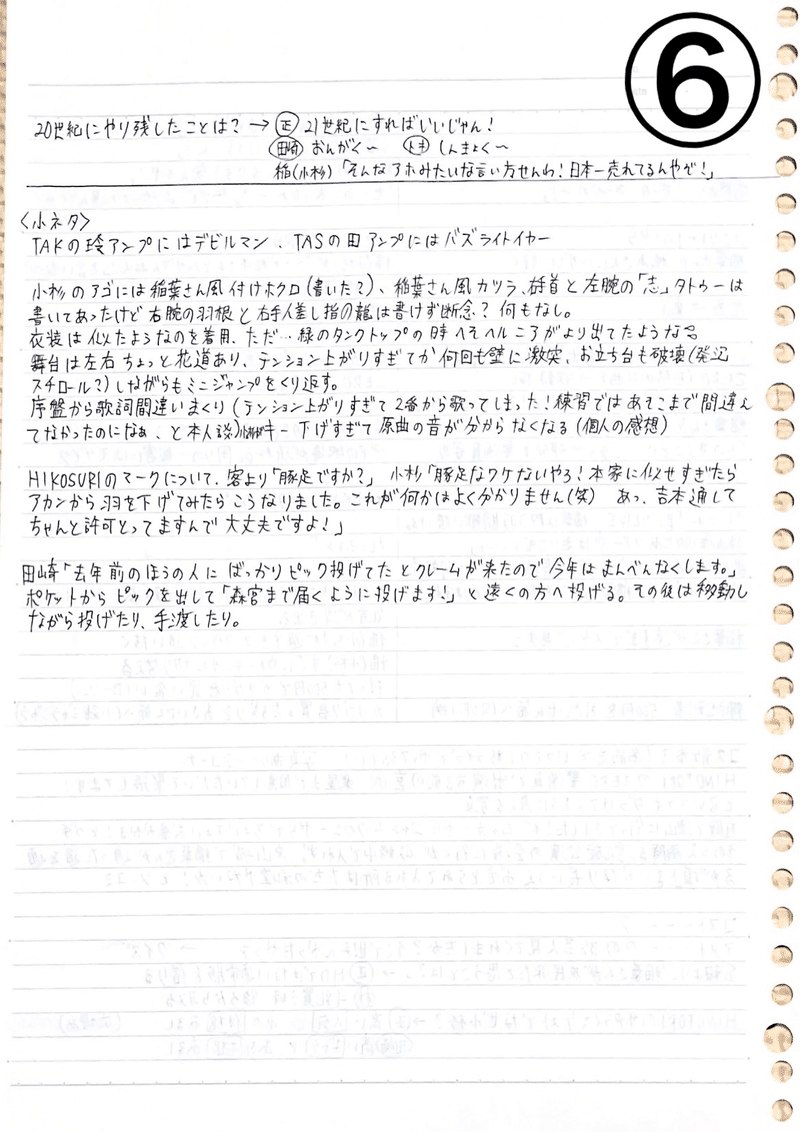 ⑥
20世紀にやり残したことは?→(正)21世紀にすればいいじゃん!
(田崎)おんがく〜 しんきょく〜
稲(小杉)「そんなアホみたいな言い方せんわ!日本一売れてるんやぞ!」
〈小ネタ〉
TAKの玲アンプにはデビルマン、TASの田アンプにはバズライトイヤー
小杉のアゴには稲葉さん風付けホクロ(書いた?)、稲葉さん風カツラ、 首と左腕の「志」タトゥーは
書いてあったけど右腕の羽根と右手人差し指の龍は書けず断念?何もなし。
衣装は似たようなのを着用、ただ…緑のタンクトップの時へそヘルニアがより出てたような…
舞台は左右ちょっと花道あり、テンション上がりすぎてか何回も壁に激突、お立ち台も破壊(発泡
スチロール?)しながらもミニジャンプをくり返す。
序盤から歌詞間違いまくり(テンション上がりすぎて2番から歌ってしまった!練習ではあそこまで間違え
てなかったのになぁ、と本人談)小杉がキー下げすぎて原曲の音が分からなくなる(個人の感想)
HIKOSURIのマークについて、客より「豚足ですか?」 小杉「豚足なワケないやろ!本家に似せすぎたら
アカンから羽を下げてみたらこうなりました。これが何かはよく分かりません(笑) あっ、吉本通して
ちゃんと許可とってますんで大丈夫ですよ!」
田崎「去年前のほうの人にばっかりピック投げてたとクレームが来たので今年はまんべんなくします。」
ポケットからピックを出して「森宮まで届くように投げます!」と遠くの方へ投げる。その後は移動し
ながら投げたり、手渡したり。